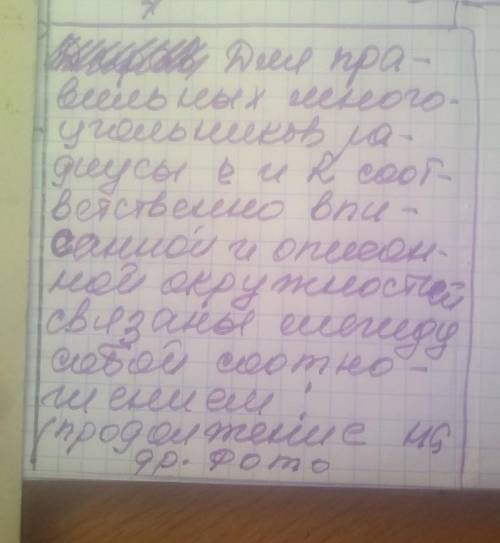 Для пра-
вильных много-
угольников ра-
диусы r и R соот-
ветственно впи-
санной и описан-
ной окружностей
связаны между
собой соотно-
шением:
(продолжение на
др. фото